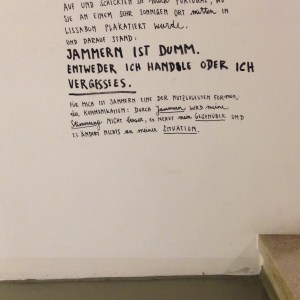 AUF UND SCHICKTEN IN NACH PORTUGAL, WO
SIE AN EINEM SEHR SONNIGEN ORT MITTEN IN
LISSABON PLAKATIERT WURDE.
UND DARAUF STAND:
JAMMERN IST DUMM.
ENTWEDER ICH HANDLE ODER ICH
VERGESSE ES.
FÜR MICH IST JAMMERN EINE DER NUTZLOSESTEN FORMEN
DER KOMMUNIKATION: DURCH JAMMERN WIRD MEINE
STIMMUNG NICHT BESSER, ES NERVT MEIN GEGENÜBER UND
ES ÄNDERT NICHTS AN MEINER SITUATION.